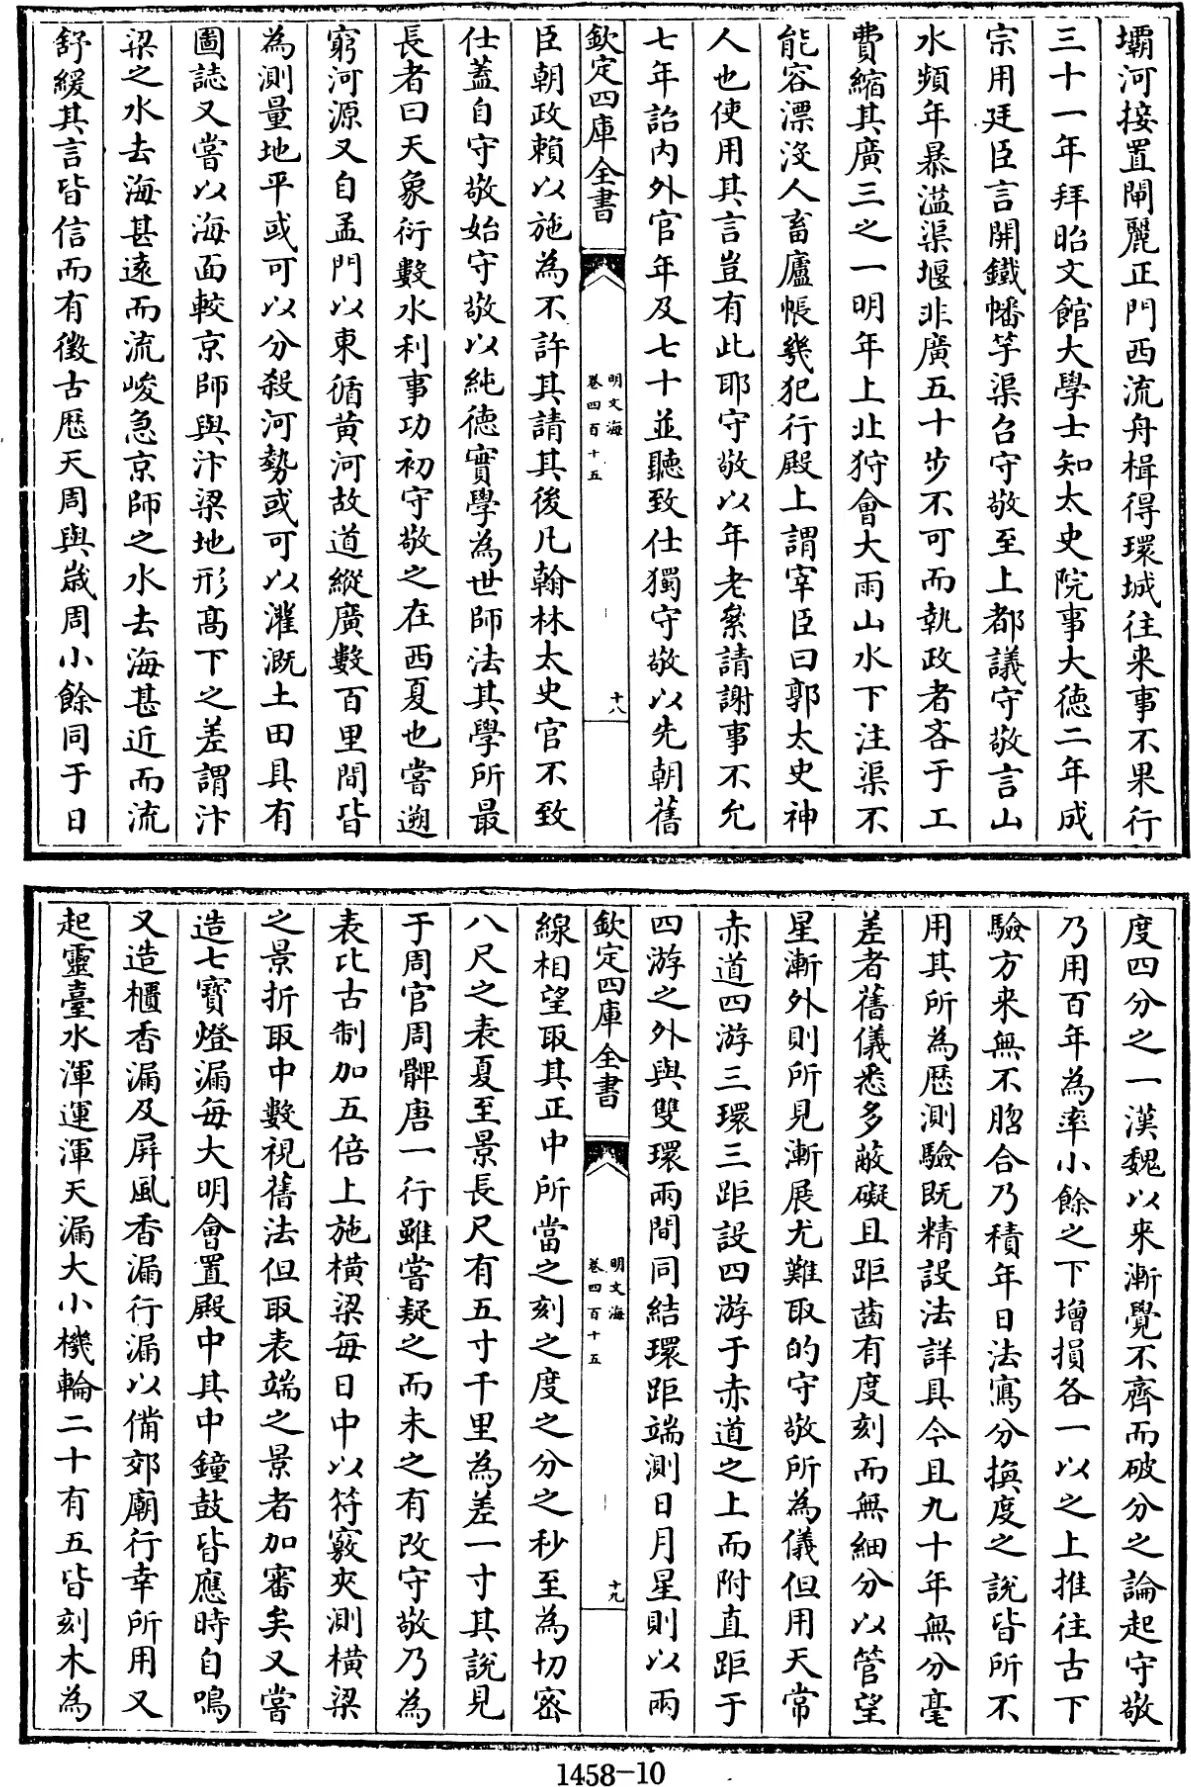 壩河接置閘麗正門西流舟楫得環城往来事不果行
三十一年拜昭文館大學士知太史院事大德二年成
宗用廷臣言開鐵幡竿渠召守敬至上都議守敬言山
水頻年暴溢渠堰非廣五十步不可而執政者吝于工
費縮其廣三之一明年上北狩會大雨山水下注渠不
能容漂沒人畜廬帳幾犯行殿上謂宰臣曰郭太史神
人也使用其言豈有此耶守敬以年老絫請謝事不允
七年詔内外官年及七十並聽致仕獨守敬以先朝舊
欽定四庫全書
明文海
卷四百十五
十八
臣朝政賴以施為不許其請其後凡翰林太史官不致
仕蓋自守敬始守敬以純德實學為世師法其學所最
長者曰天象衍數水利事功初守敬之在西夏也嘗遡
窮河源又自孟門以東循黄河故道縱廣數百里間皆
為測量地平或可以分殺河勢或可以灌溉土田具有
圖誌又嘗以海面較京師與汴梁地形髙下之差謂汴
梁之水去海甚遠而流峻急京師之水去海甚近而流
舒緩其言皆信而有徵古厯天周與嵗周小餘同于日
度四分之一漢魏以来漸覺不齊而破分之論起守敬
乃用百年為率小餘之下增損各一以之上推往古下
驗方来無不脗合乃積年日法寫分換度之說皆所不
用其所為厯測驗既精設法詳具今且九十年無分毫
差者舊儀悉多蔽礙且距齒有度刻而無細分以管望
星漸外則所見漸展尤難取的守敬所為儀但用天常
赤道四游三環三距設四游于赤道之上而附直距于
四游之外與雙環兩間同結環距端測日月星則以兩
欽定四庫全書
明文海
卷四百十五
十九
線相望取其正中所當之刻之度之分之秒至為切宻
八尺之表夏至景長尺有五寸千里為差一寸其說見
于周官周髀唐一行雖嘗疑之而未之有改守敬乃為
表比古制加五倍上施橫梁每日中以符竅夾測橫梁
之景折取中數視舊法但取表端之景者加審矣又嘗
造七寳燈漏每大明會置殿中其中鐘鼓皆應時自鳴
又造櫃香漏及屏風香漏行漏以備郊廟行幸所用又
起靈臺水渾運渾天漏大小機輪二十有五皆刻木為
1458-10